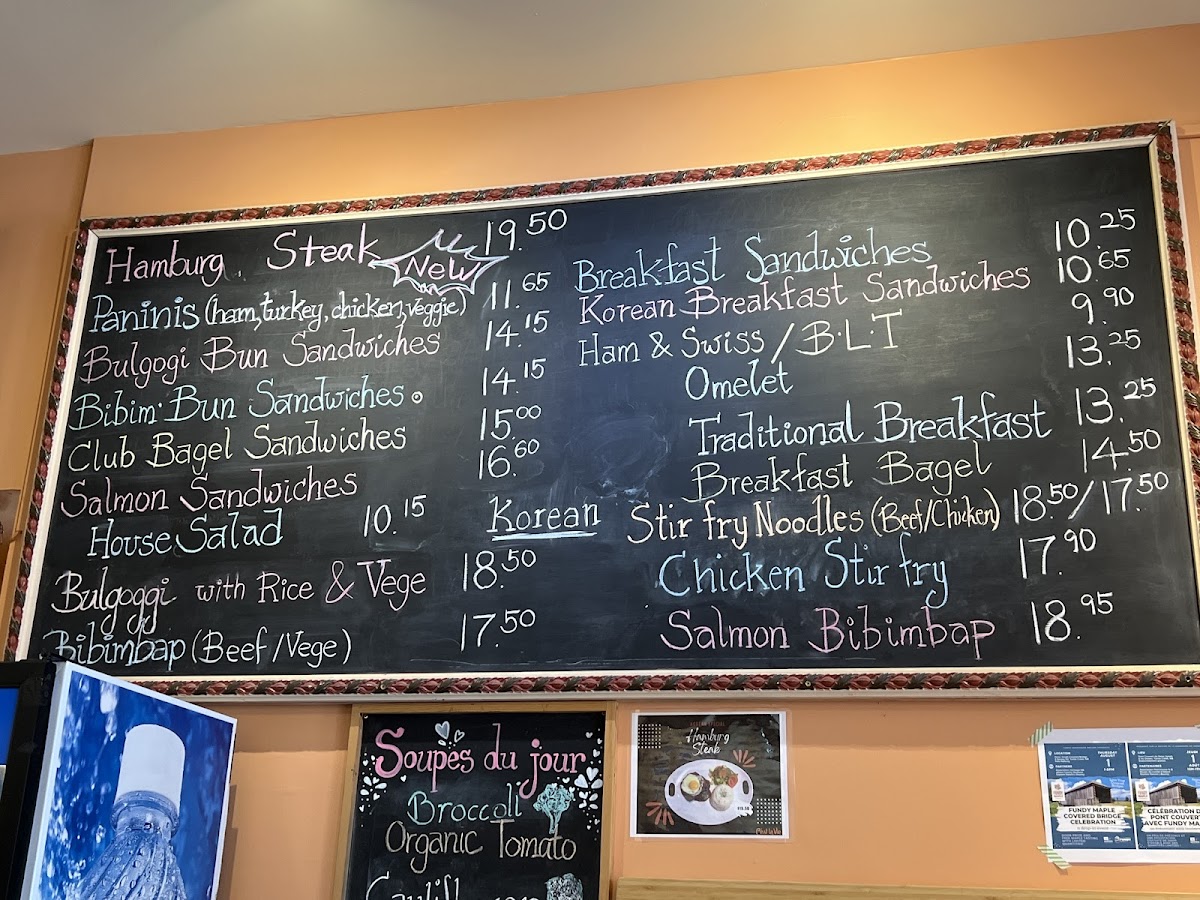 Hamburg Steak NEW 19.50
Paninis (ham, turkey, chicken, veggie) 11.65
Bulgogi Bun Sandwiches 14.15
Bibim Bun Sandwiches 14.15
Club Bagel Sandwiches 15.00
Salmon Sandwiches 16.60
House Salad 10.15
Korean
Bulgoggi with Rice & Vege 18.50
Bibimbap (Beef/Vege) 17.50
Breakfast Sandwiches 10.25
Korean Breakfast Sandwiches 10.65
Ham & Swiss / B·L·T 9.90
Omelet 13.25
Traditional Breakfast 13.25
Breakfast Bagel 14.50
Stir fry Noodles (Beef/Chicken) 18.50/17.50
Chicken Stir fry 17.90
Salmon Bibimbap 18.95
Soupes du jour
Broccoli
Organic Tomato
Hamburg
Steak
THURSDAY
AUGUST
1
FUNDY MAPLE
COVERED BRIDGE
CELEBRATION
1